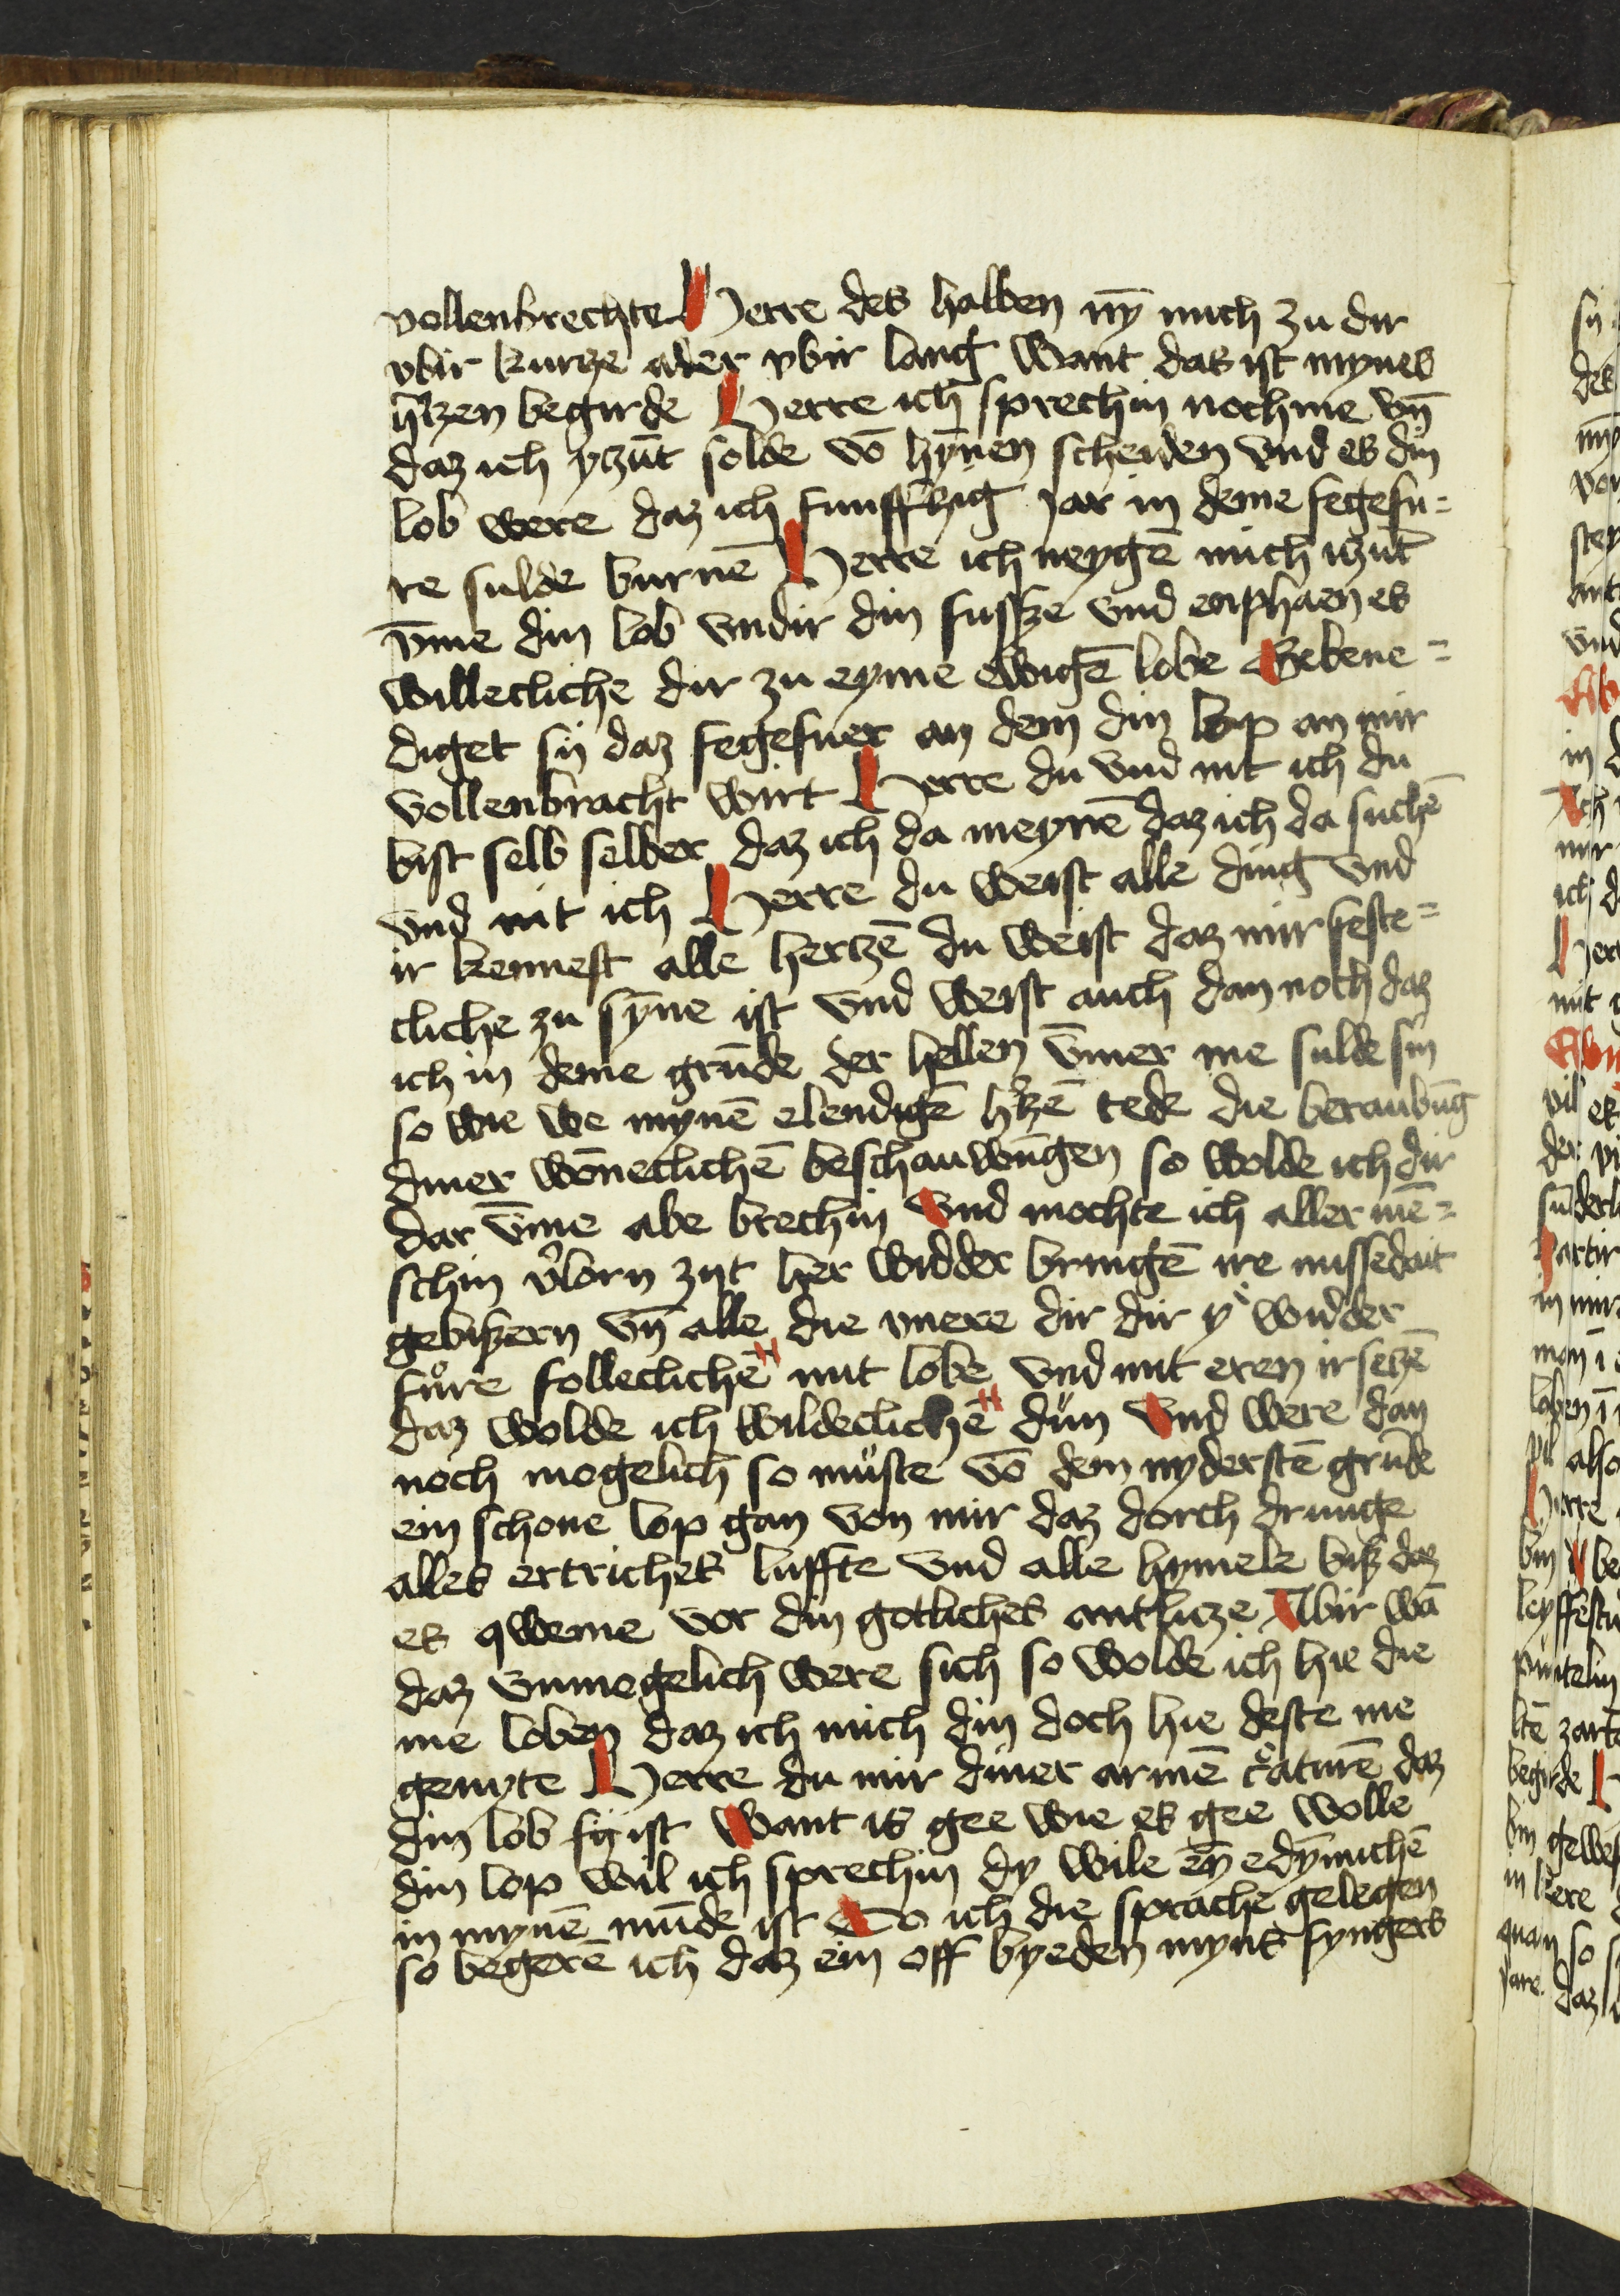 vollenbrechte Herre des halben ny̅ mich zu dir
vbir kurtze ader vbir lang Want das ist mynes
h̅tzen begirde Herre ich sprechin noch me vn̅
daz ich ytzu̅t solde vo̅ hy̅nen scheiden vnd es din
lob were daz ich funfftzig jar in deme fegefu=
re sulde burne̅ Herre ich neyge̅ mich itzu̅t
v̅me din lob vndir din fussze vnd enphaen es
willecliche dir zu eyme ewige̅ lobe Gebene=
diget sij daz fegefuer an dem din lop an mir
vollenbracht wirt Herre du vnd nit ich du
bist selb selber daz ich da meyne̅ daz ich da suche̅
vnd nit ich Herre du weist alle ding vnd
ir kennest alle hertze̅ du weist daz mir feste=
cliche zu sy̅ne ist vnd weist auch dan noch daz
ich in deme gru̅de der hellen v̅mer me sulde sin
so wie we myne̅ elendige̅ h̅tze̅ tede die beraubu̅g
diner wo̅necliche̅ beschauwu̅gen so wolde ich dir
dar v̅me abe brechin Vnd mochte ich aller me̅=
schin v̓lorn zijt her widder bringe̅ ire missedait
gebiszern vn̅ alle die vnere dir dir y̓ widder
fuͦre follecliche̅ mit lobe vnd mit eren irsetze̅
daz wolde ich wildecliche̅ dün Vnd were dan
noch mogelich so müste vo̅ dem nyderste̅ gru̅de
ein schone lop gan von mir daz dorch drunge
alles ertriches luffte vnd alle hymele bisz daz
es qweme vor din gotliches antlitze Abir wa̅
daz vnmogelich were sich so wolde ich hie die
me loben daz ich mich din doch hie deste me
genyte Herre du mir diner arme̅ c̓ature̅ daz
din lob sij ist Want is gee wie es gee wolle
din lop wil ich sprechin dy wile ey̅ edymiche̅
in myne̅ mu̅de ist So ich die sprache gelegen
so begere̅ ich daz ein off byeden myns fyngers